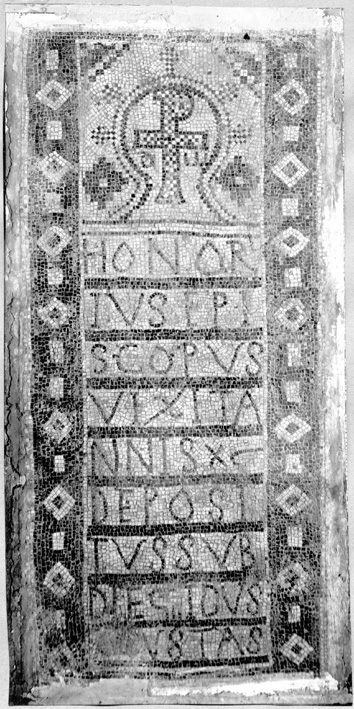 α ω
HONOR
IVS EPI
SCOPVS
VIXIT A
NNIS XC
DEPOSI
TVS SVB
DIE IDVS
VSTAS